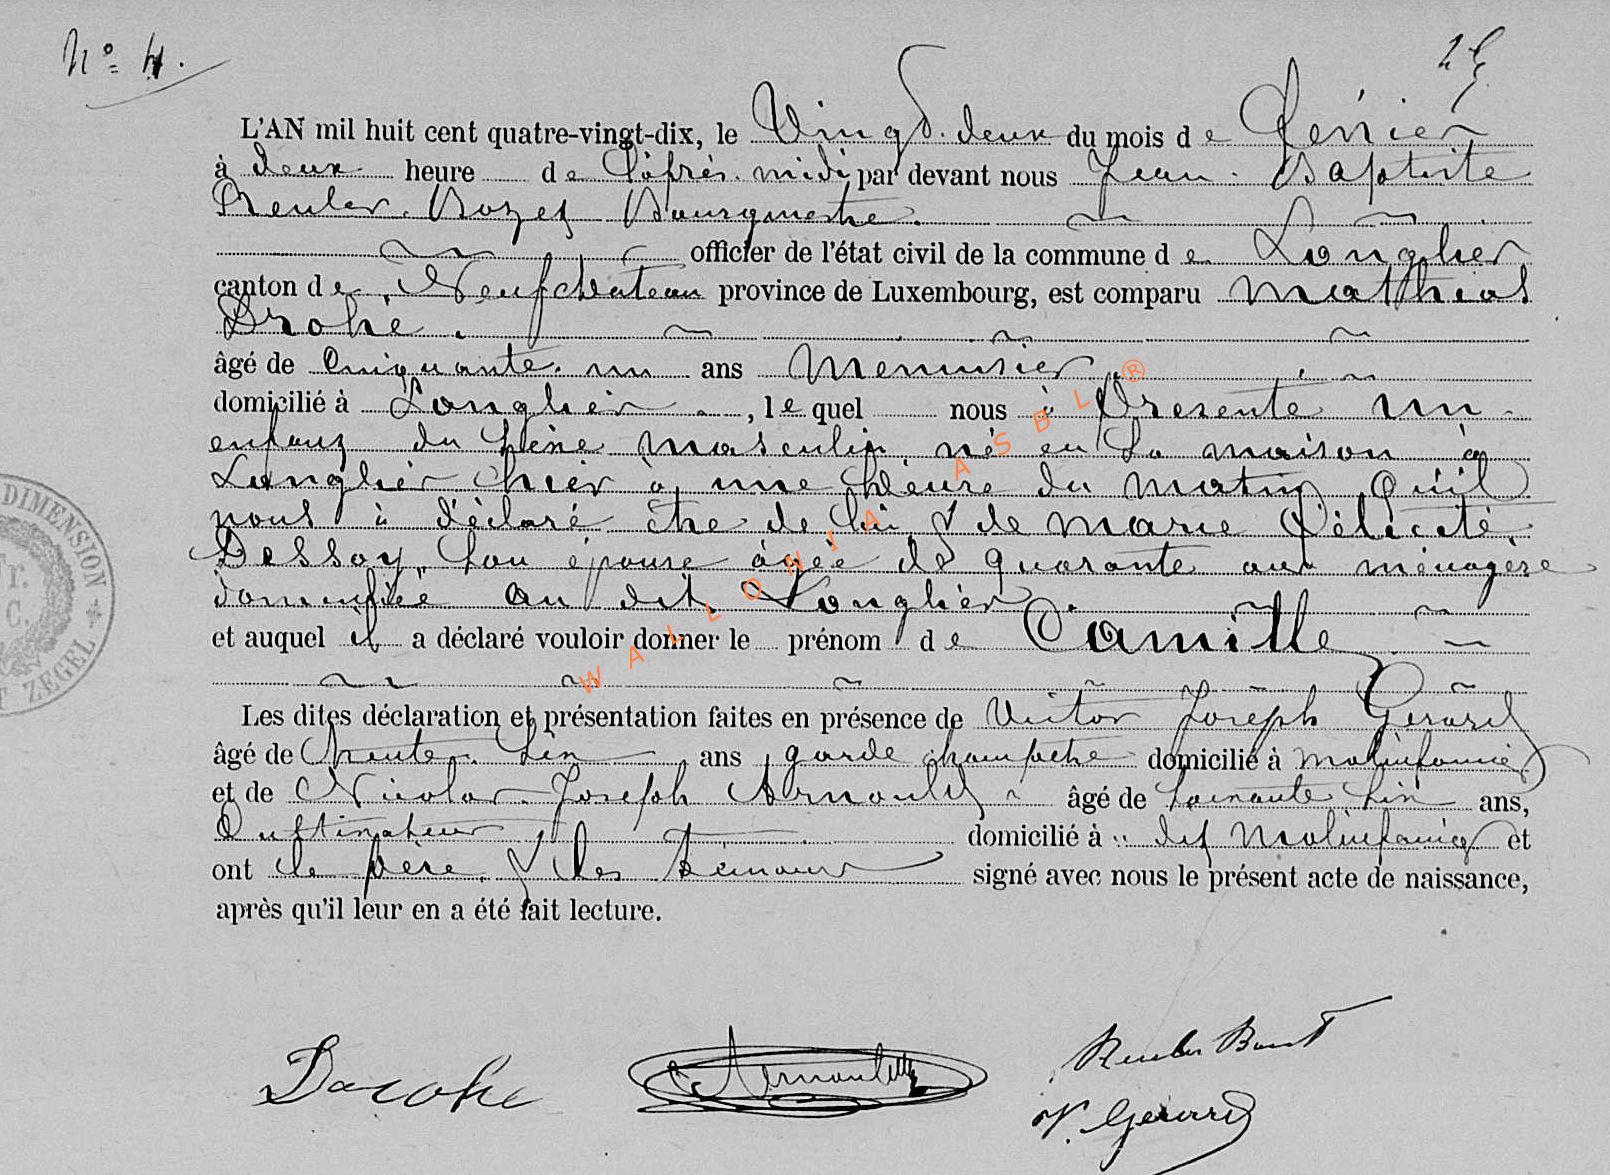 N° 4.
L'AN mil huit cent quatre-vingt-dix, le Vingt deux du mois de Février
à deux heure de l'après midi par devant nous Jean Baptiste
Reuler Bourgmestre
officier de l'état civil de la commune de Longlier
canton de Neufchateau province de Luxembourg, est comparu Mathias
Drohé
âgé de Cinquante un ans Menuisier
domicilié à Longlier, lequel nous à Présenté un
enfant du sèxe masculin né en sa maison à
Longlier hier à une heure du matin qu'il
nous à déclaré être de lui & de Marie Félicité
Dessoy son épouse agée de quarante ans ménagère
domiciliée au dit Longlier
et auquel il a déclaré vouloir donner le prénom de Camille
Les dites déclaration et présentation faites en présence de Victor Joseph Gérard
âgé de trente six ans garde champètre domicilié à Molinfaing
et de Nicolas Joseph Arnould âgé de soixante six ans,
Cultivateur domicilié à dit Molinfaing et
ont le père & les témoins signé avec nous le présent acte de naissance,
après qu'il leur en a été fait lecture.
Drohé Arnould Reuler
V. Gerard
DIMENSION
ZEGEL
WALLONIA ASBL ®